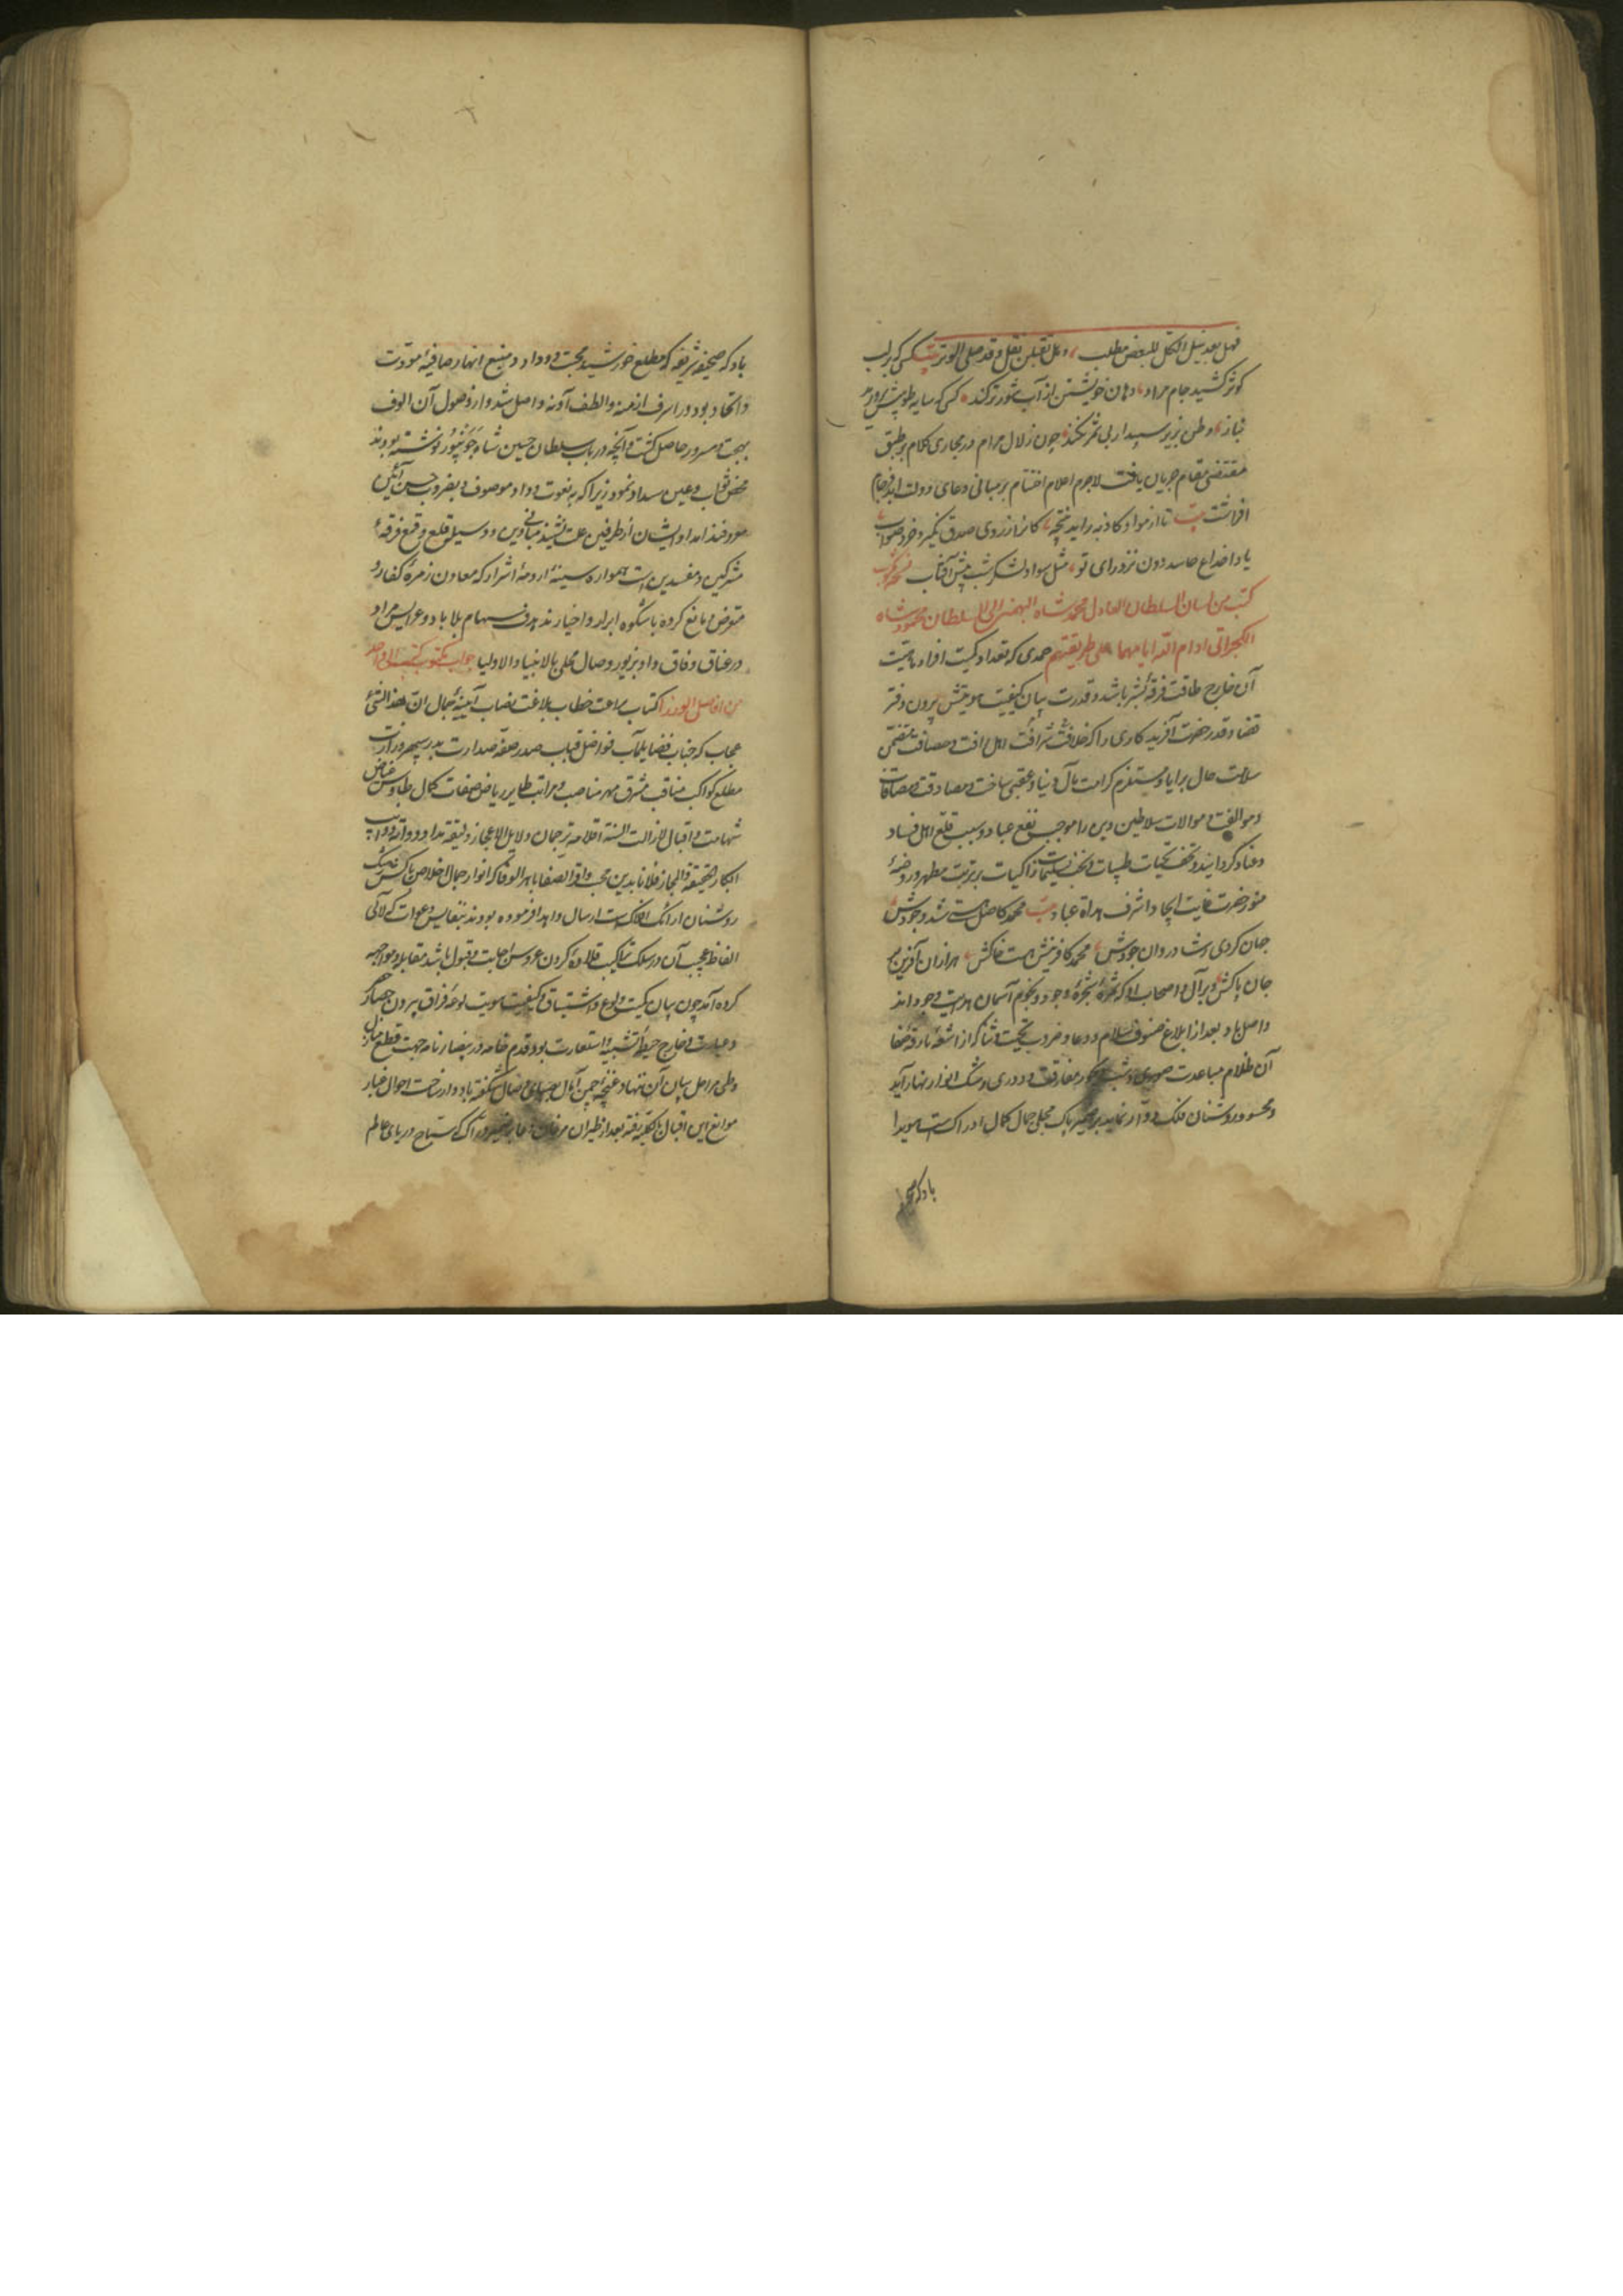 فهل بعد نیل الکل للبعض مطلب وهل تقبلن نقل وقد حصل الوتر بیت کسی که بر لب
کوثر کشید جام مراد دهان خویشتن از آب شور تر نکند کسی که سایه طوبیش پرورد
بناز وطن بزیر سپیدار بی ثمر نکند چون زلال مرام در مجاری کلام بر طبق
مقتضی مقام جریان یافت لاجرم اعلام اختتام بر مبانی دعای دولت ابد فرجام
افراشت بیت تا از مواد کاذبه زاید نتیجه کانرا ز روی صدق نگیرد خرد صواب
باد اختراع حاسد دون نزد رای تو مثل سواد لشکر شب پیش آفتاب
کتب من لسان السلطان العادل محمد شاه البهمنی الی السلطان محمود شاه
الکجراتی ادام الله ایامهما علی طریقتهم حمدی که تعداد کمیت افراد ماهیت
آن خارج طاقت فرقه بشر باشد و قدرت بیان کیفیت هویتش بیرون دفتر
قضا و قدر حضرت آفریدکاری را که خلافت شرافت اهل رافت و مصافات متضمن
سلامت حال برایا و مستلزم کرامت مآل دنیا و عقبی ساخت و مصادقت و مصافات
و موالفت و موالات سلاطین دین را موجب نفع عباد و سبب قلع اهل فساد
و عناد کردانید و تحف تحیات طیبات و تحف تسلیمات زاکیات بر تربت مطهر و روضه
منور حضرت غایت ایجاد و اشرف هداة عباد بیت محمد کاصل هستی شد وجودش
جهان کردی ز شادروان جودش محمد کافرینش هست خاکش هزاران آفرین بر
جان پاکش و بر آل و اصحاب او که ثمره شجره وجود و نجوم آسمان هدایت و جود اند
واصل باد بعد از ابلاغ صنوف سلام و دعا و ضروب تحیت و ثنا که از اشعه بارقه صفا
آن ظلام مباعدت صوری و شب دیجور مفارقت و دوری رشک انوار نهار آید
و محسود روشنان فلک دوار نماید بر ضمیر پاک که مجلی جمال کمال ادراک است هویدا
باد که صحیفه
باد که صحیفه شریفه که مطلع خورشید محبت و وداد و منبع انهار صافیه مودت
و اتحاد بود در اشرف ازمنه و الطف آونه واصل شد و از وصول آن الوف
بهجت و سرور حاصل کشت و آنچه در باب سلطان حسین شاه جونپور نوشته بودند
محض ثواب و عین سداد نمود زیرا که به نعوت وداد موصوف و بضروب حسن آئین
معروفند امداد ایشان از طرفین علت تشیید مبانی دین و وسیله قلع و قمع فرقه
مشرکین و مفسدین است همواره سینه ارومه اشرار که معاون زمره کفار و
متعرض و مانع کروه باشکوه ابرار و اخیارند هدف سهام بلا باد و عرایس مراد
در عناق وفاق و داد بزیور وصال محلی بالانبیا و الاولیا جواب مکتوب کتب الی واحد
من افاضل الوزرا کتاب براعت خطاب بلاغت نصاب آیینه جمال ان هذا لشئ
عجاب که جناب فضایل مآب فواضل قباب صدر صفه صدارت بدر سپهر وزارت
مطلع کواکب مناقب مشرق مهر مناصب و مراتب طایر ریاض صفات کمال طاوس حیاض
شهامت و اقبال لازالت السنة اقلامه ترجمان دلایل الاعجاز و لیقه مداد دواته ذوایب
ابکار الحقیقة و المجاز فلانا بدین محب وافر الصفا باهر الوفا که انوار جمال اخلاصش پاک
روشنان ارائک افلاک است ارسال و اهدا فرموده بودند بنفایس دعوات که لآلی
الفاظ عجیب آن در سلک تراکیب قلاده کردن عروس اجابت و قبول باشد مقابله و مواجهه
کرده آمد چون بیان کمیت ولوع و اشتیاق و کیفیت هویت لوعه فراق بیرون حصار
و عبارت و خارج حیطه تشبیه و استعارت بود قدم خامه در بیضاء نامه جهت قطع منازل
و طی مراحل بیان آن ننهاد غنچه انجمن آمال بهبای وصال شکفته باد و از ساحت احوال غبار
موانع این اقبال رفته بعد از طیران مرغان دعا بر ضمیر دراک که سباح دریای عالم